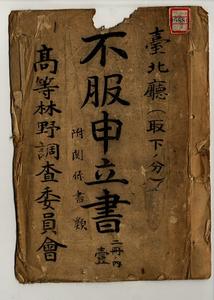 臺北廳(取下ノ分)
不服申立書 二冊ノ内 壹
附関係書類
高等林野調査委員會